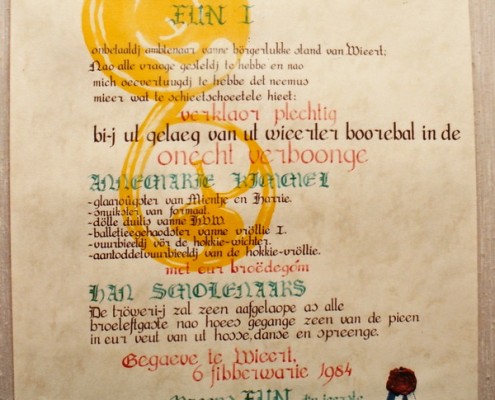 FUN I
onbetaaldj ambtenaar vanne börgerlukke stand van Wieert;
Nao alle vraoge gesteldj te hebbe en nao
mich oeevertuugdj te hebbe det neemus
mieer wat te schieetschoetele hieet:
verklaor plechtig
bi-j ut gelaeg van ut wieerter booreba​l in de
onecht verboonge
ANNEMARIE KIMMEL
-glaaroügster van Mientje en Harrie.
-snuikster van formaat.
-dölle duilis vanne H.V.W.
-balletieegehoodster vanne vröllie I.
-vuurbieeldj vör de hokkie-wichter.
-aantoddelvuurbieeldj van de hokkie-vröllie.
met eur broëdegóm
HAN SMOLENAARS
De tröwerij zal zeen aafgelaope as alle
broeleftgaste nao hoees gegange zeen van de pieen
in eur veut van ut hosse, danse en spreenge.
Gegaeve te Wieert,
6 fibberwarie 1984
FUN